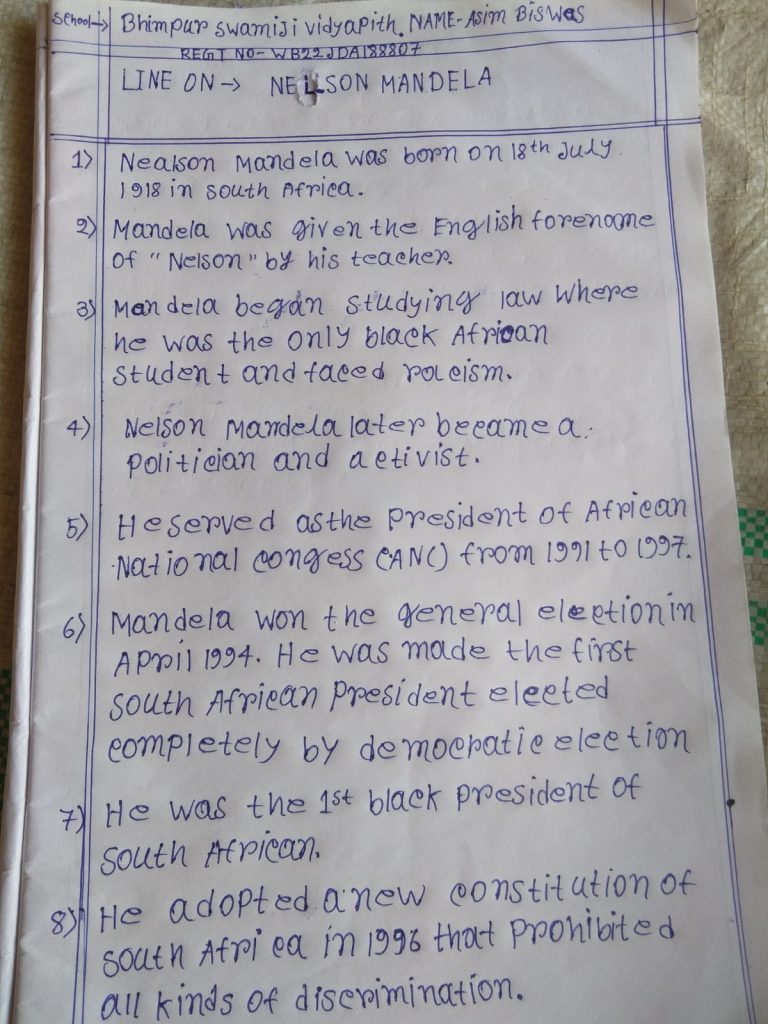 School→ Bhimpur swamiji vidyapith. NAME-Asim Biswas
REGT NO- WB22JDA188807
LINE ON → NELSON MANDELA
1) Nealson Mandela was born on 18th July
1918 in south Africa.
2) Mandela was given the English forename
of "Nelson" by his teacher.
3) Mandela began studying law where
he was the only black African
student and faced racism.
4) Nelson Mandela later became a
politician and activist.
5) He served as the president of African
National congess (ANC) from 1991 to 1997.
6) Mandela won the general election in
April 1994. He was made the first
south African president elected
completely by democratic election
7) He was the 1st black president of
south African.
8) He adopted a new constitution of
south Africa in 1996 that prohibited
all kinds of discrimination.